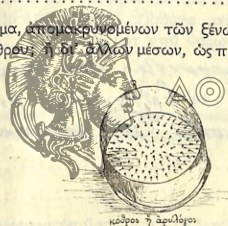 μα, ἀπομακρυνομένων τῶν ξένω
θρου; ἢ δι' ἄλλων μέσων, ὡς π
κοθρος ἢ ἀρυλόγος